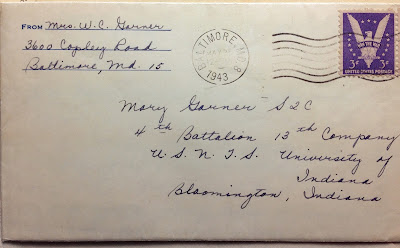 FROM Mrs. W. C. Garner
3600 Copley Road
Baltimore, Md. 15
BALTIMORE, MD. 8
1943
WIN THE WAR
3¢ 3¢
UNITED STATES POSTAGE
Mary Garner S2C
4th Battalion 13th Company
U. S. N. T. S. University of
Indiana
Bloomington, Indiana